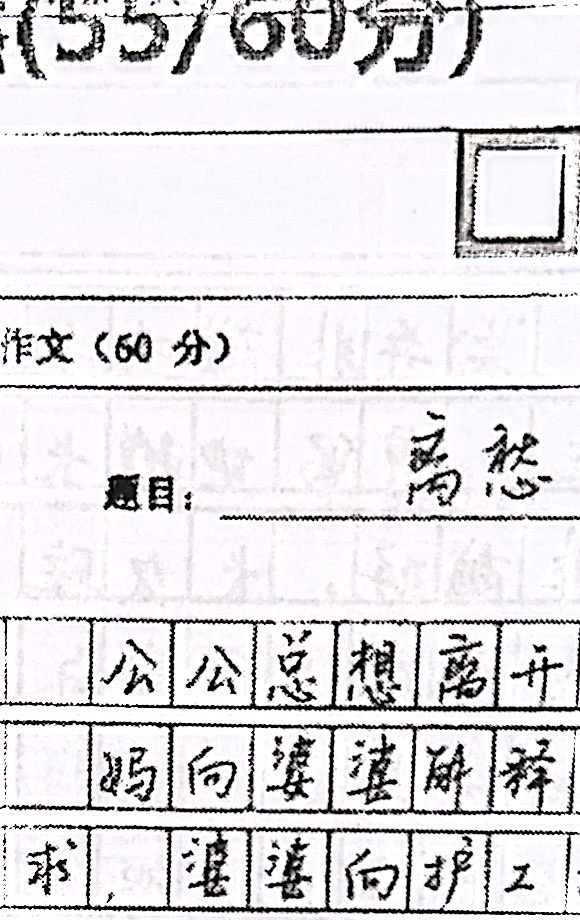 (55/60分)
作文（60 分）
题目： 离愁
公公总想离开
妈向婆婆解释
求，婆婆向护工